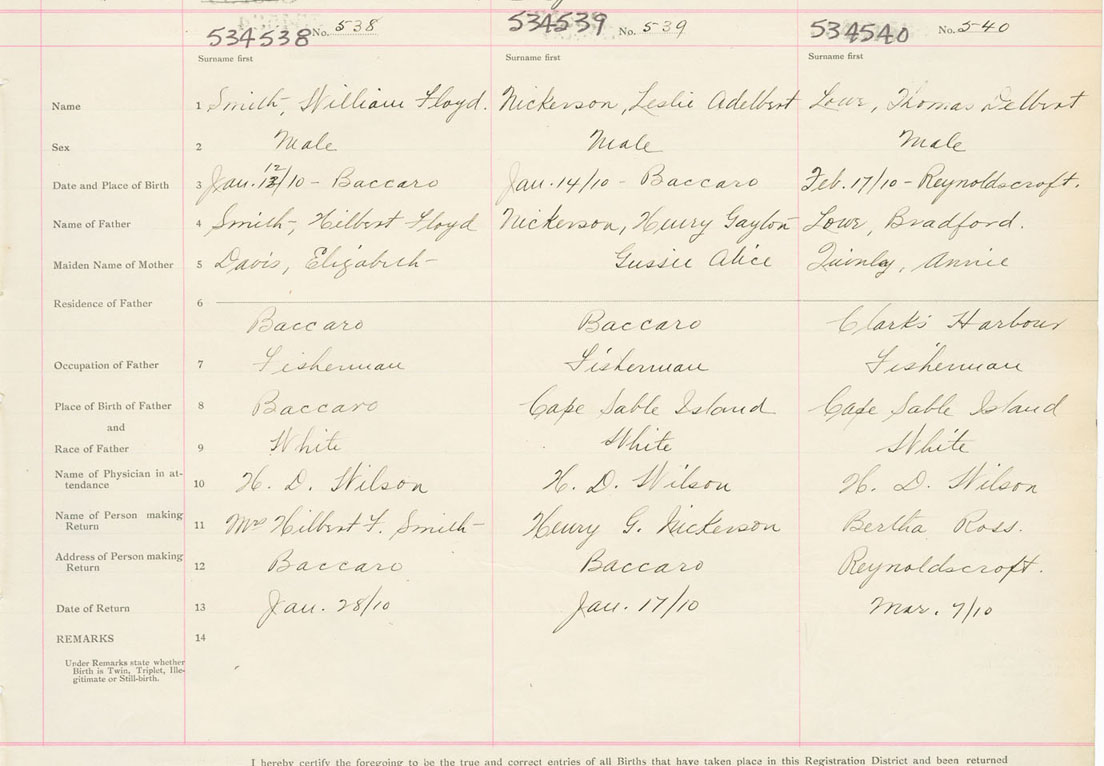 534538 No. 538 534539 No. 539 534540 No. 540
Surname first Surname first Surname first
Name 1 Smith, William Floyd. Nickerson, Leslie Adelbert Lowe, Thomas Delbert
Sex 2 Male Male Male
12
Date and Place of Birth 3 Jan. 13/10 - Baccaro Jan. 14/10 - Baccaro Feb. 17/10 - Reynoldscroft.
Name of Father 4 Smith, Hilbert Floyd Nickerson, Henry Gaylon Lowe, Bradford.
Maiden Name of Mother 5 Davis, Elizabeth Gussie Alice Annie
Residence of Father 6
Baccaro Baccaro Clark's Harbour
Occupation of Father 7 Fisherman Fisherman Fisherman
Place of Birth of Father 8 Baccaro Cape Sable Island Cape Sable Island
and
Race of Father 9 White White White
Name of Physician in at-
tendance 10 H. D. Wilson H. D. Wilson H. D. Wilson
Name of Person making
Return 11 Mrs Hilbert F. Smith Henry G. Nickerson Bertha Ross.
Address of Person making
Return 12 Baccaro Baccaro Reynoldscroft.
Date of Return 13 Jan. 28/10 Jan. 17/10 Mar. 7/10
REMARKS 14
Under Remarks state whether
Birth is Twin, Triplet, Ille-
gitimate or Still-birth.
I hereby certify the foregoing to be the true and correct entries of all Births that have taken place in this Registration District and been returned